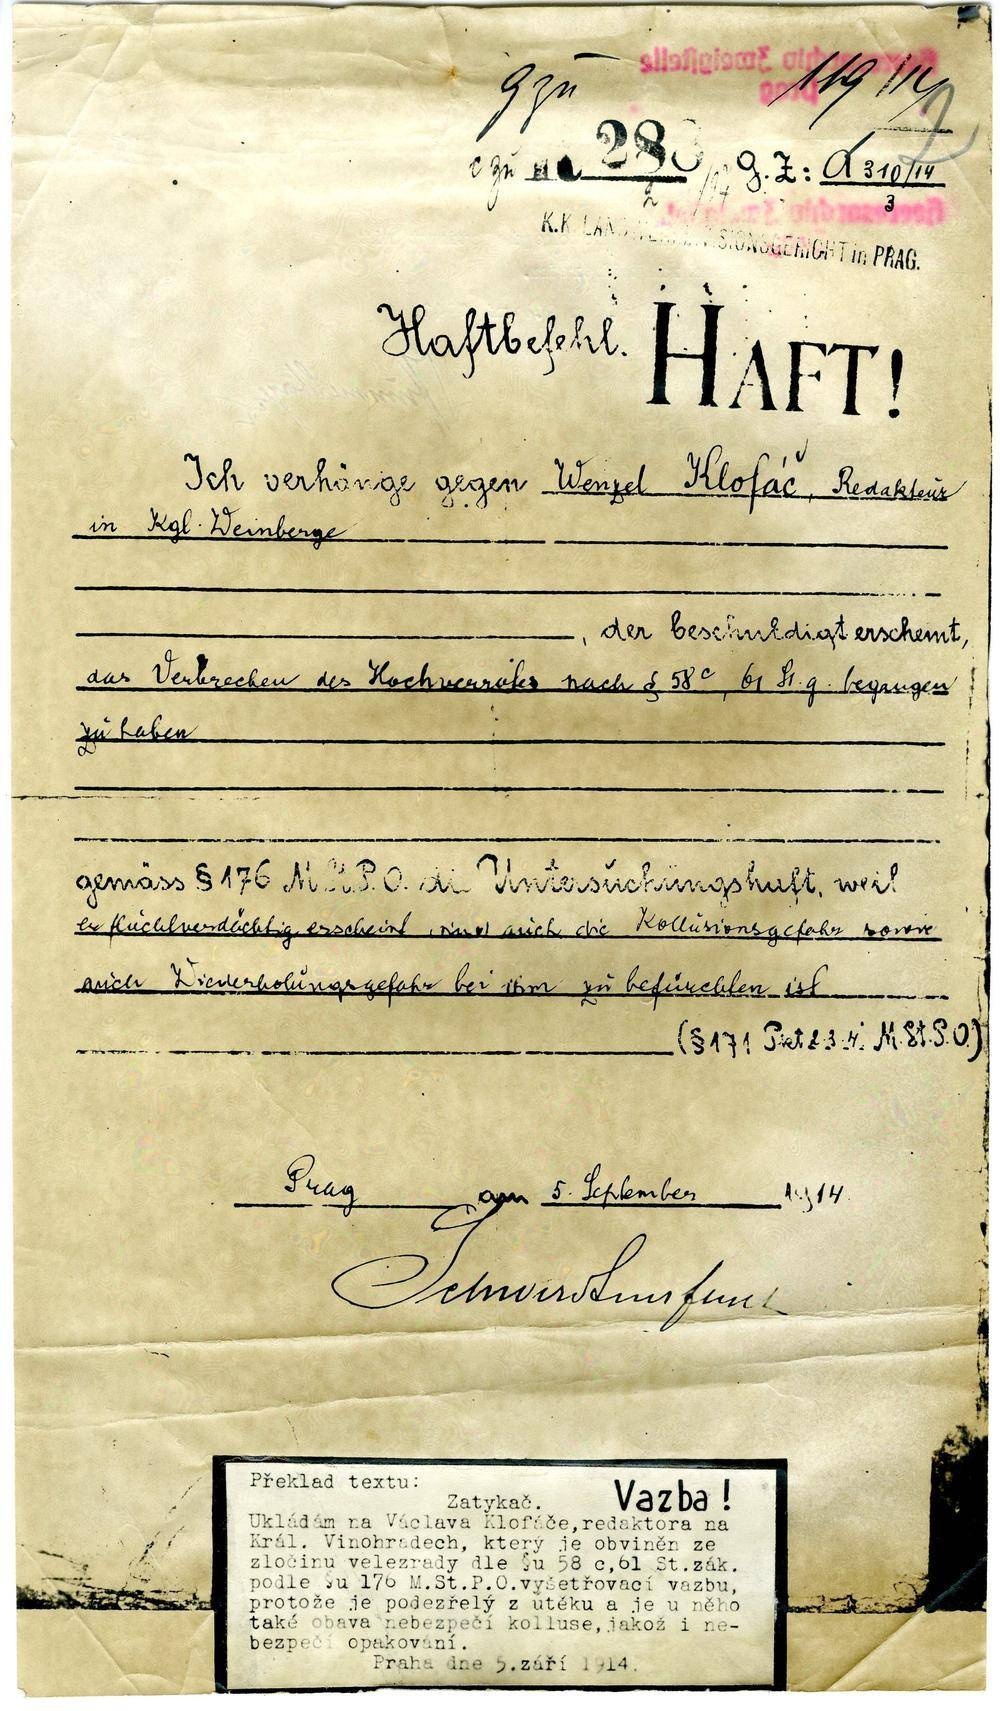 g zu 119/14
2
zu 283 G.Z: A 310/14
2 /14 3
K.K. LANDWEHRDIVISIONSGERICHT in PRAG.
Haftbefehl. HAFT!
Ich verhänge gegen Wenzel Klofáč, Redakteur
in Kgl. Weinberge
, der beschuldigt erscheint,
das Verbrechen des Hochverrates nach § 58 c, 61 St. g. begangen
zu haben
gemäss § 176 M.St.P.O. die Untersuchungshaft, weil
er fluchtverdächtig erscheint und auch die Kollusionsgefahr sowie
auch Wiederholungsgefahr bei ihm zu befürchten ist
(§ 171 Pkt 2. 3. 4. M.St.P.O.)
Prag am 5. September 1914.
Překlad textu:
Zatykač. Vazba!
Ukládám na Václava Klofáče,redaktora na
Král. Vinohradech, který je obviněn ze
zločinu velezrady dle §u 58 c,61 St.zák.
podle §u 176 M.St.P.O.vyšetřovací vazbu,
protože je podezřelý z útěku a je u něho
také obava nebezpečí kolluse,jakož i ne-
bezpečí opakování.
Praha dne 5.září 1914.